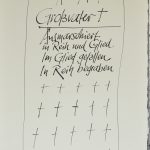 Großvater †
Ausmarschiert
in Reih und Glied
Im Glied gefallen
In Reih begraben